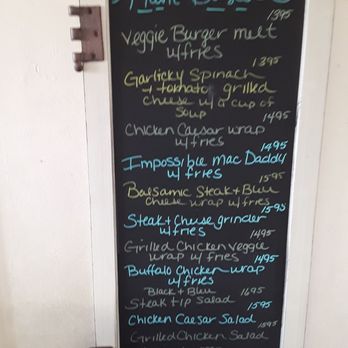 1395
Veggie Burger melt
w/fries
1395
Garlicky Spinach
+ tomato grilled
cheese w/ a cup of
Soup
1495
Chicken Caesar wrap
w/fries
1495
Impossible Mac Daddy
w/ fries
1595
Balsamic Steak + Bleu
cheese wrap w/fries
1595
Steak + Cheese grinder
w/fries
1495
Grilled Chicken veggie
wrap w/ fries
1495
Buffalo Chicken wrap
w/fries
1695
Black + Bleu
Steak tip Salad
1595
Chicken Caesar Salad
1595
Grilled Chicken Salad